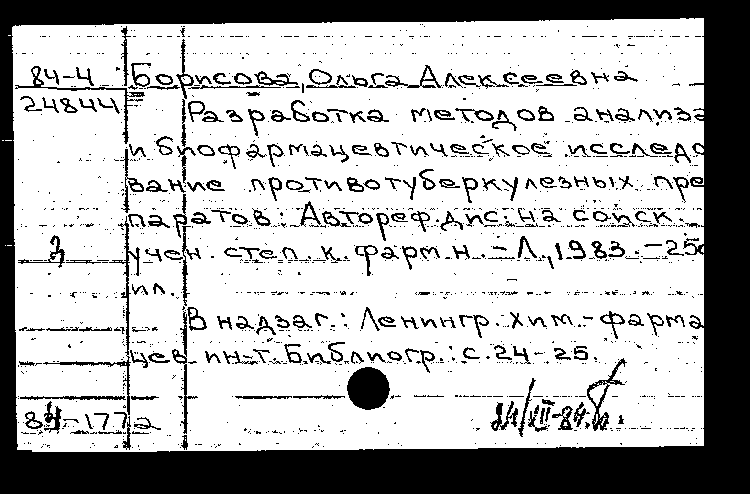 84-4
24844
Борисова, Ольга Алексеевна
Разработка методов анализа
и биофармацевтическое исследо
вание противотуберкулезных пре
паратов: Автореф. дис. на соиск.
учен. степ. к. фарм. н. - Л., 1983. - 25с
ил.
В надзаг.: Ленингр. хим.-фарма
цев. ин-т. Библиогр.: с. 24-25.
84-1772